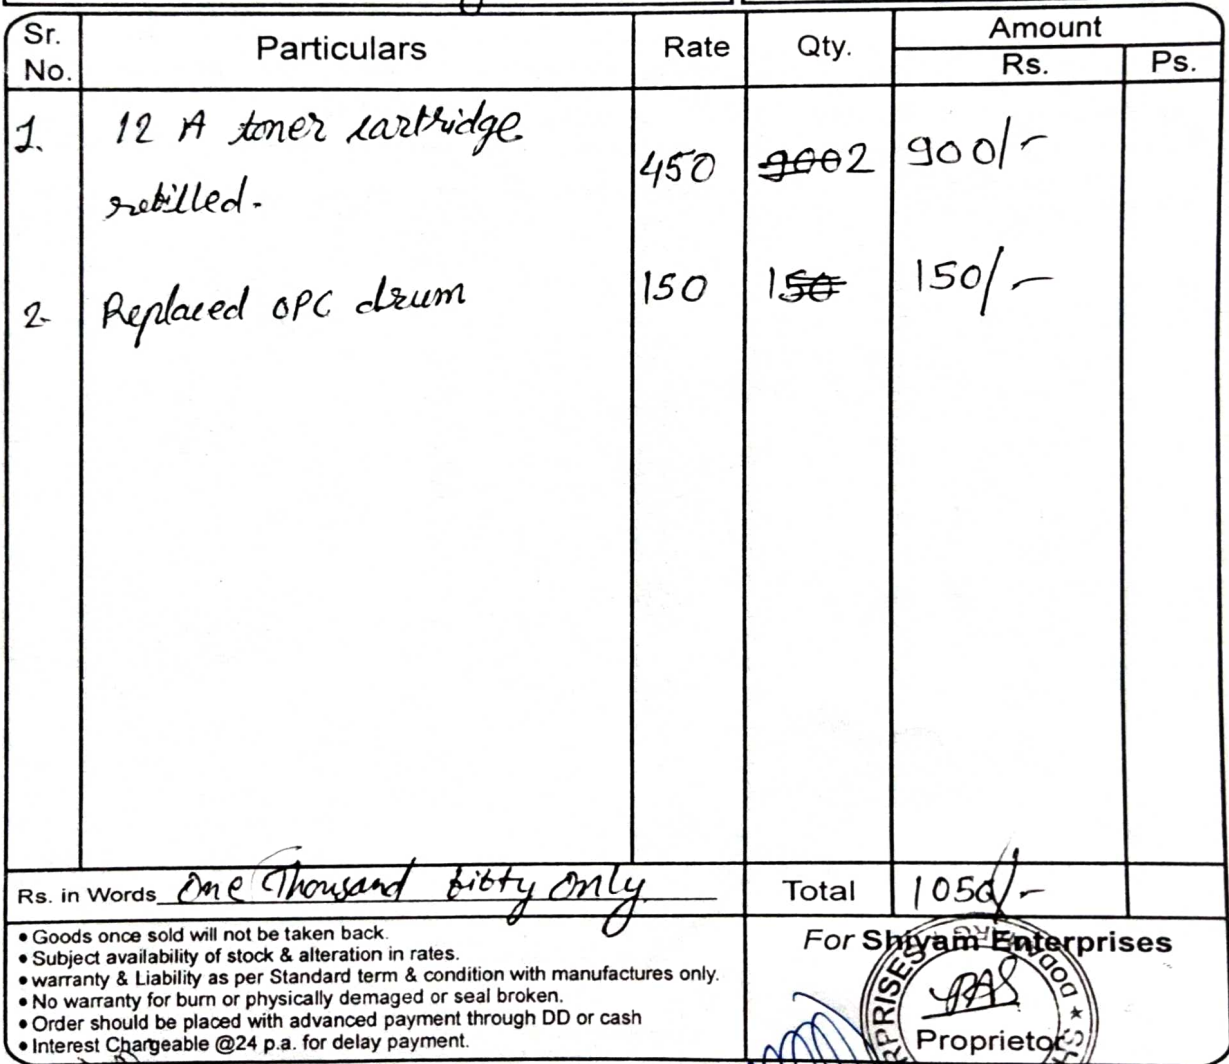 Sr. No. Particulars Rate Qty. Amount
Rs. Ps.
1. 12 A toner cartridge 450 2 900/-
refilled.
2. Replaced OPC drum 150 1 150/-
Rs. in Words One Thousand fifty only Total 1050/-
• Goods once sold will not be taken back.
• Subject availability of stock & alteration in rates.
• warranty & Liability as per Standard term & condition with manufactures only.
• No warranty for burn or physically demaged or seal broken.
• Order should be placed with advanced payment through DD or cash
• Interest Chargeable @24 p.a. for delay payment.
For Shiyam Enterprises
Proprietor